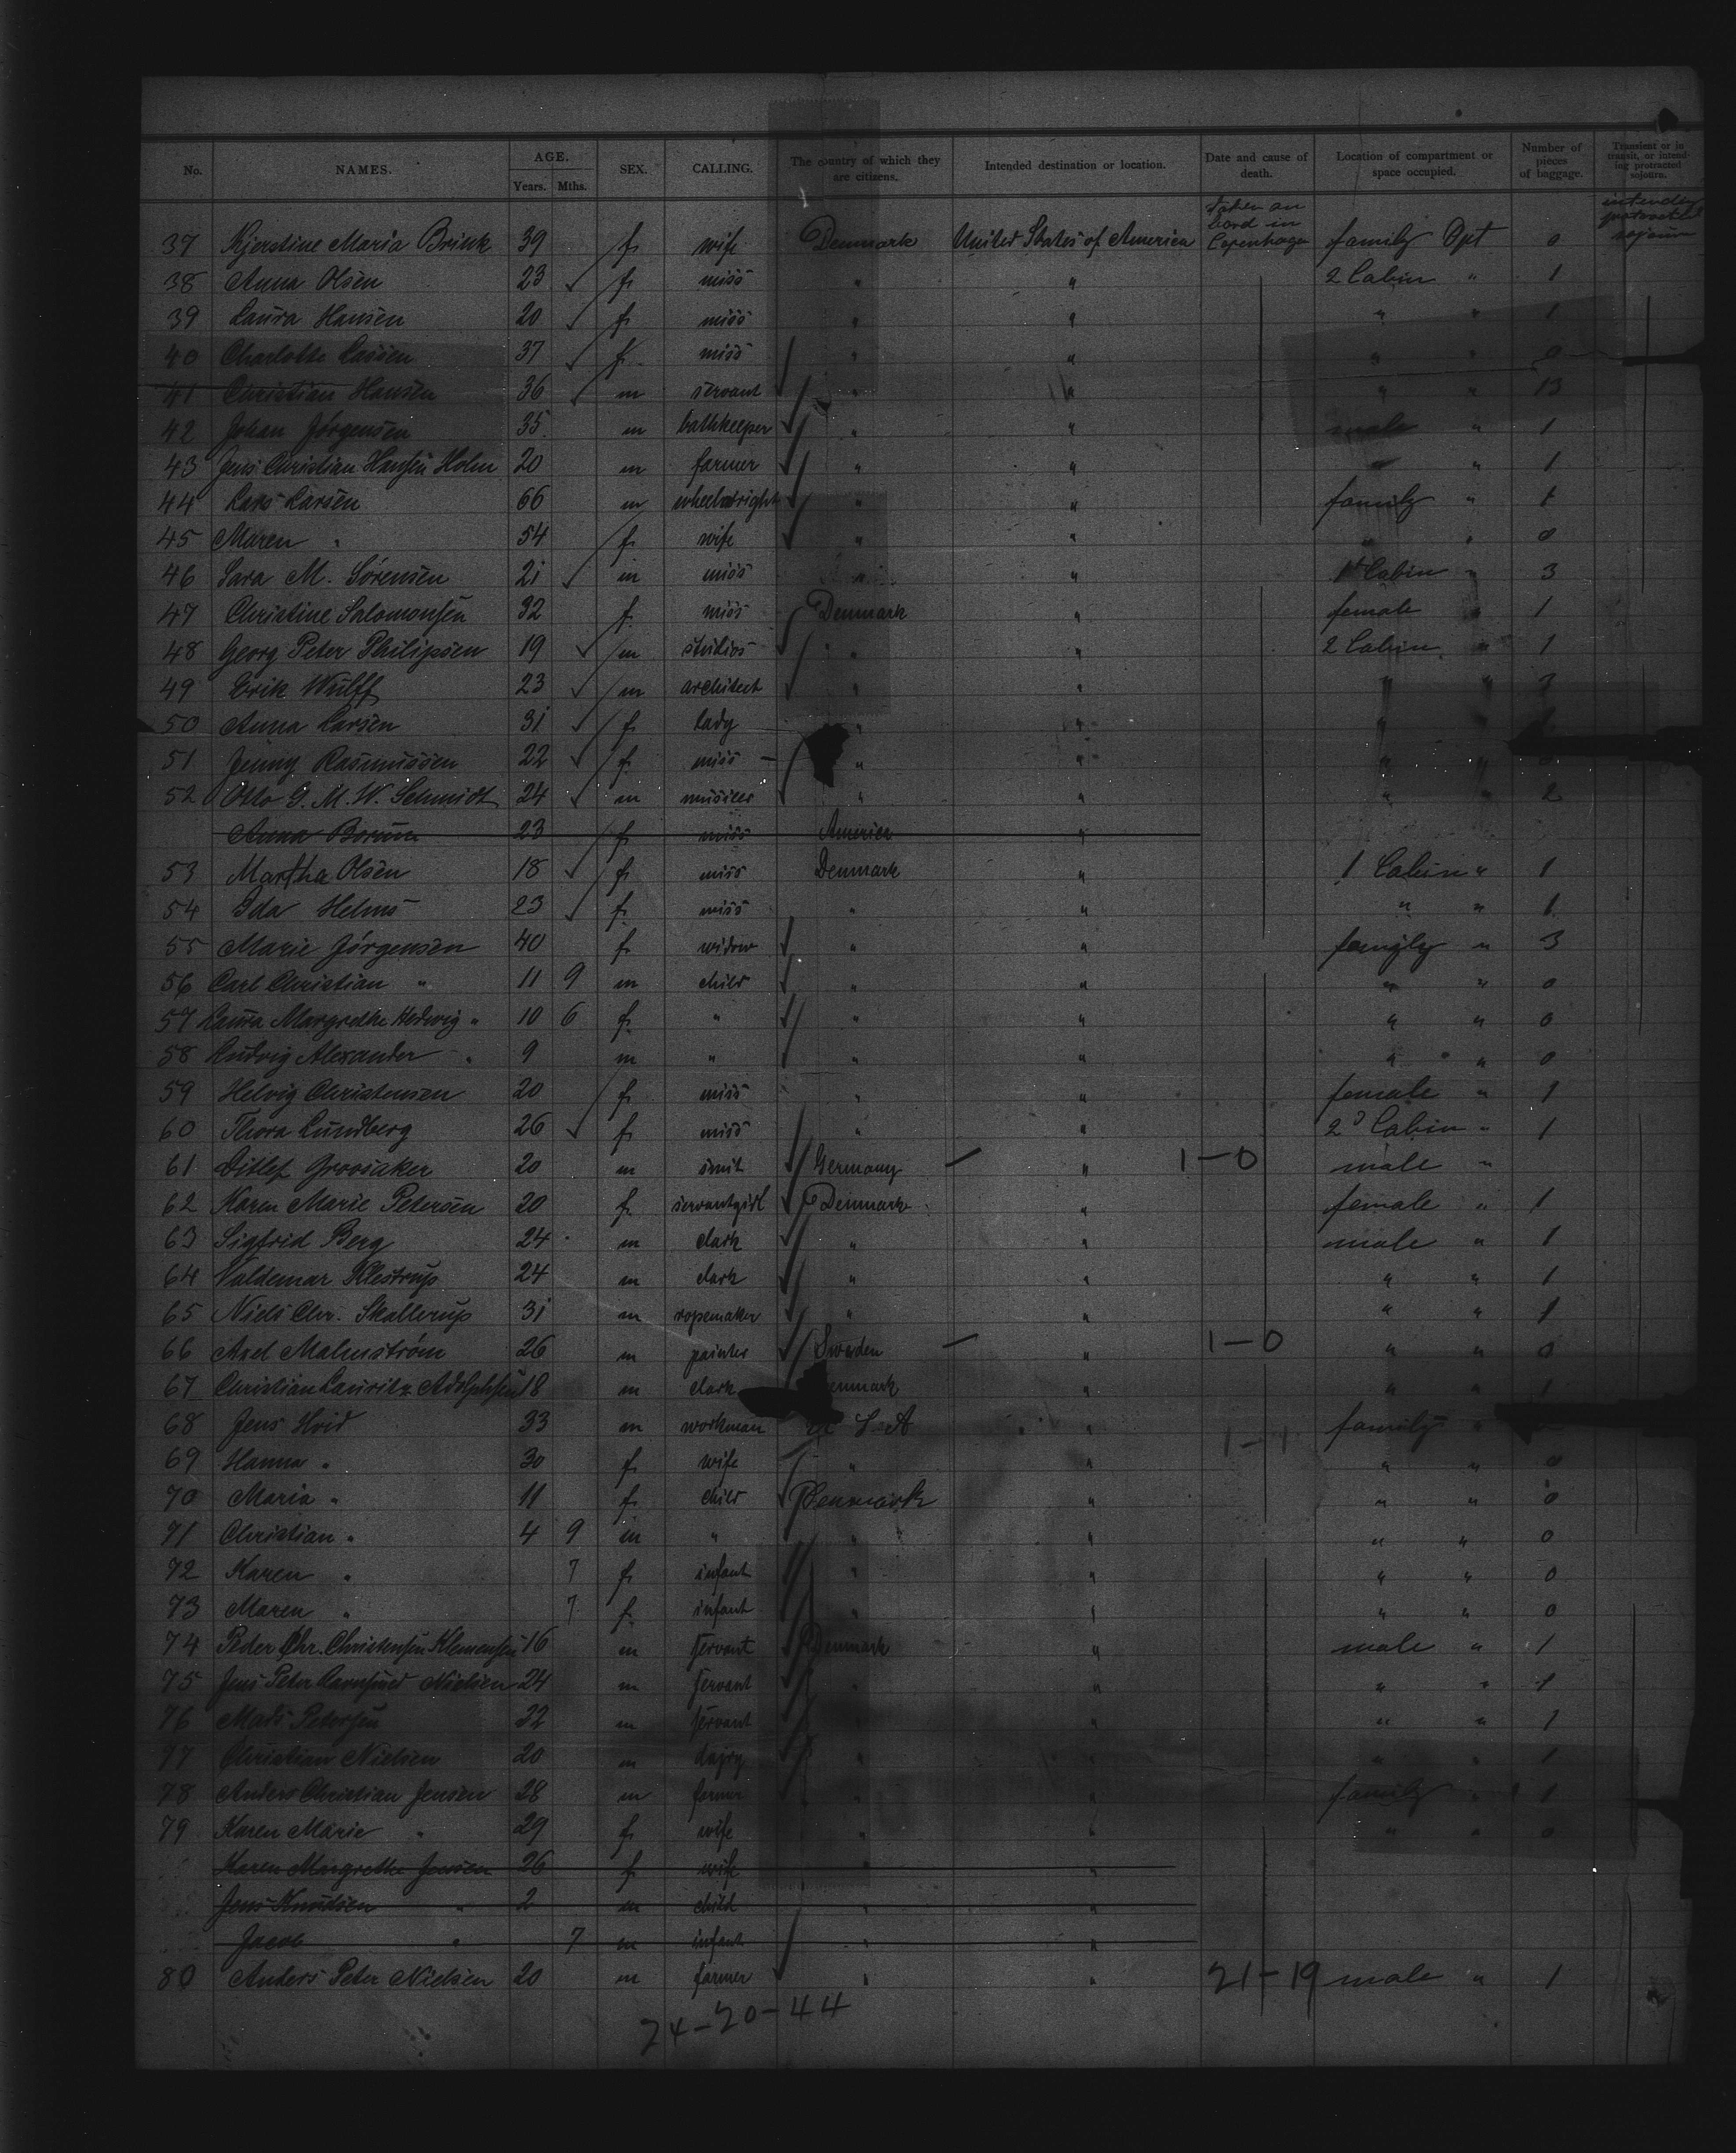 No. NAMES. AGE. Years. Mths. SEX. CALLING. The country of which they are citizens. Intended destination or location. Date and cause of death. Location of compartment or space occupied. Number of pieces of baggage. Transient or in transit, or intending protracted sojourn.
37 Kjerstine Maria Brink 39 f wife Denmark United States of America Taken on bord in Copenhagen family Dpt 0 intending protracted sojourn
38 Anna Olsen 23 ✓ f miss " " 2 Cabin " 1
39 Laura Hansen 20 ✓ f miss " " " " 1
40 Charlotte Lassen 37 ✓ f miss " " " " 0
41 Christian Hansen 36 ✓ m servant " " " " 13
42 Johan Jørgensen 35 m bathkeeper " " male " 1
43 Jens Christian Hansen Holm 20 m farmer " " " " 1
44 Lars Larsen 66 m wheelwright " " family " 1
45 Maren " 54 f wife " " " " 0
46 Sara M. Sørensen 21 ✓ m miss " " 1st Cabin " 3
47 Christine Salomonsen 32 f miss Denmark " female 1
48 Georg Peter Philipsen 19 ✓ m studios " " 2 Cabin " 1
49 Erik Wulff 23 ✓ m architect " " " "
50 Anna Larsen 31 ✓ f lady " " "
51 Jenny Rasmussen 22 ✓ f miss " " " "
52 Otto G. M. W. Schmidt 24 ✓ m musiker " " " " 2
Anna Borum 23 f miss America "
53 Martha Olsen 18 ✓ f miss Denmark " 1 Cabin " 1
54 Ida Helms 23 ✓ f miss " " " " 1
55 Marie Jørgensen 40 f widow " " family " 3
56 Carl Christian " 11 9 m child " " " " 0
57 Laura Margrethe Hedwig " 10 6 f " " " " " 0
58 Ludvig Alexander " 9 m " " " " " 0
59 Helvig Christensen 20 f miss " " female " 1
60 Thora Lundberg 26 ✓ f miss " " 2d Cabin " 1
61 Ditlef 20 m smit Germany " 1-0 male "
62 Karen Marie Petersen 20 f servantgirl Denmark " female " 1
63 Sigfrid Berg 24 m clark " " male " 1
64 Valdemar Klestrup 24 m clark " " " " 1
65 Niels Chr. Skallerup 31 m ropemaker " " " " 1
66 Axel Malmstrøm 26 m painter Sweden " 1-0 " " 0
67 Christian Lauritz Adolphsen 18 m clark Denmark " " " 1
68 Jens Hvid 33 m workman U S A " 1-1 family "
69 Hanna " 30 f wife " " " " 0
70 Maria " 11 f child Denmark " " " 0
71 Christian " 4 9 m " " " " " 0
72 Karen " 7 f infant " " " " 0
73 Maren " 7 f infant " " " " 0
74 Peder Chr. Christensen Klemensen 16 m servant Denmark " male " 1
75 Jens Peter Nielsen 24 m servant " " " " 1
76 Mads Petersen 22 m servant " " " " 1
77 Christian Nielsen 20 m dajry " " " " 1
78 Anders Christian Jensen 28 m farmer " " family " 1
79 Karen Marie " 29 f wife " " " " 0
Karen Margrethe Jensen 26 f wife " "
Jens Knudsen " 2 m child " "
Jacob " 7 m infant " "
80 Anders Peter Nielsen 20 m farmer " " 21-19 male " 1
24-20-44